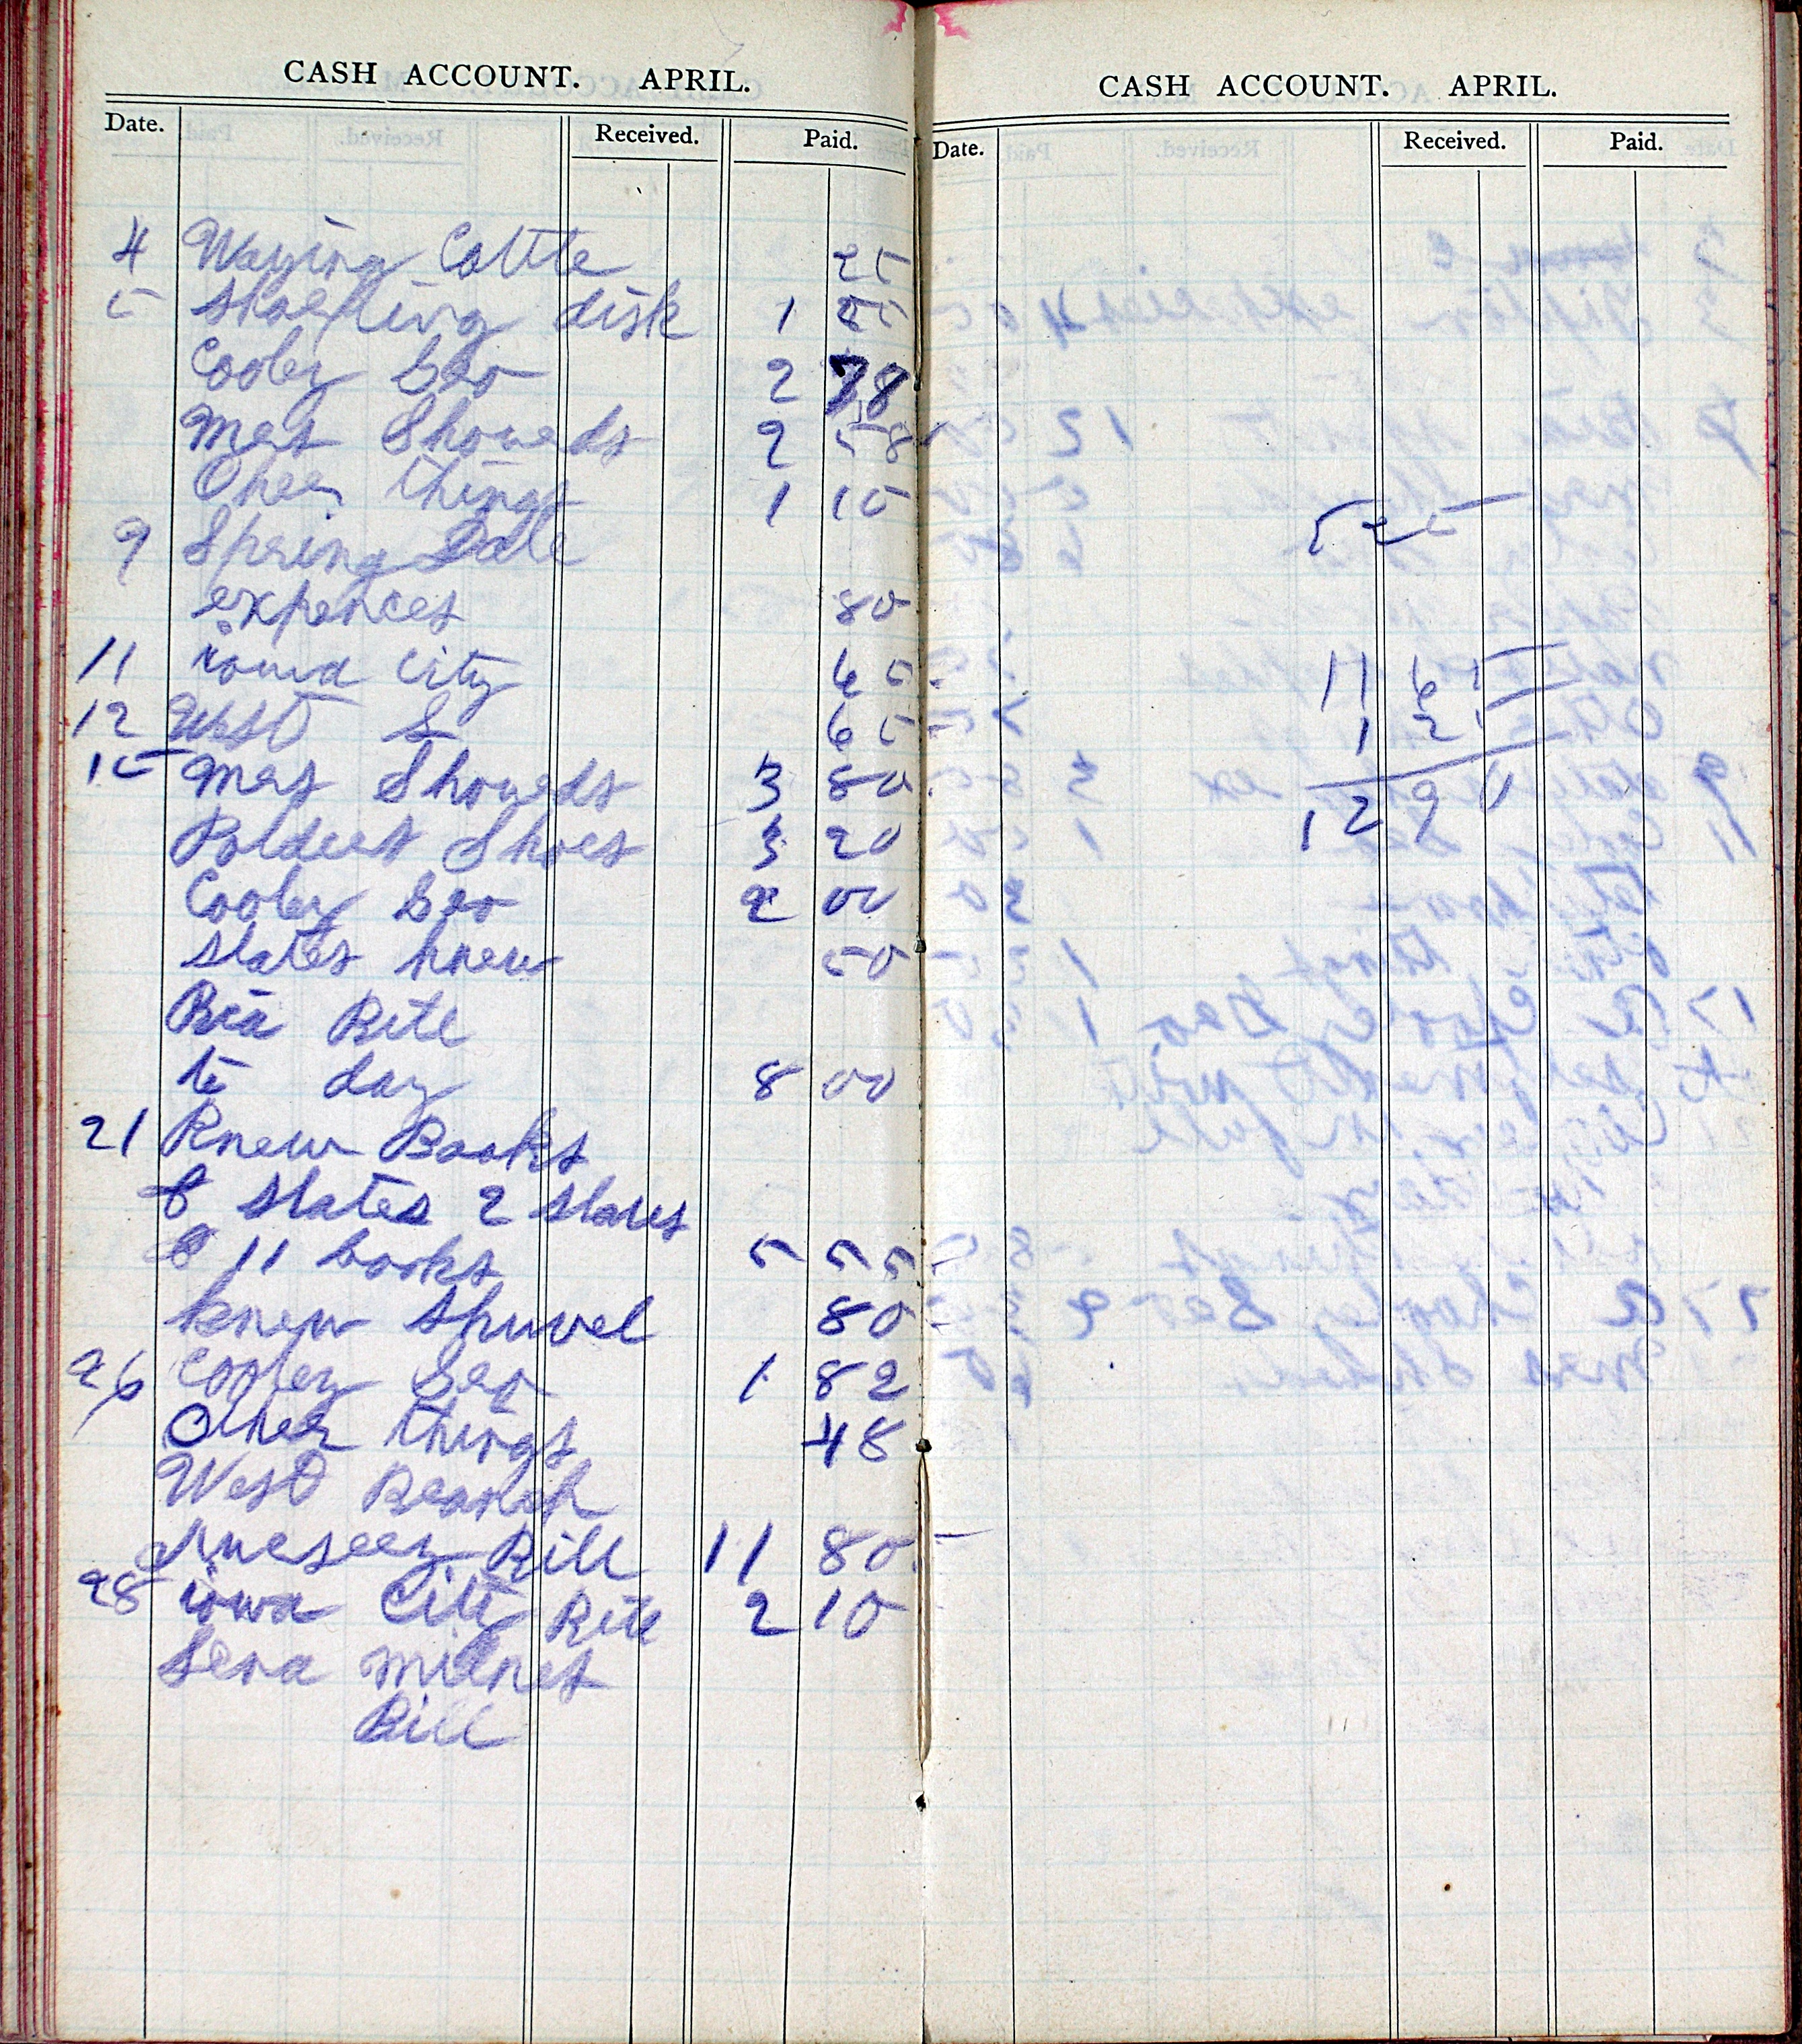 CASH ACCOUNT. APRIL.
Date. Received. Paid.
4 Waying Cattle 25
5 disk 1
Cooley Geo 2 78
Mes Showeds 2 58
Other things 1 15
9 Spring Dale
expences 80
11 iowa City 65
12 West S 65
15 Mes Showeds 3 80
Shoes 3 20
Cooley Geo 2 00
slates knew 50
Ria Bill
te day 8 00
21 Knew Books
& slates 2 slates
& 11 books 5 55
knew shuvel 80
26 Cooley Geo 1 82
Other things 48
West Branch
Bill 11 80
28 iowa City Bill 2 10
Bill
CASH ACCOUNT. APRIL.
Date. Received. Paid.
5 25
11 65
1 25
12 90